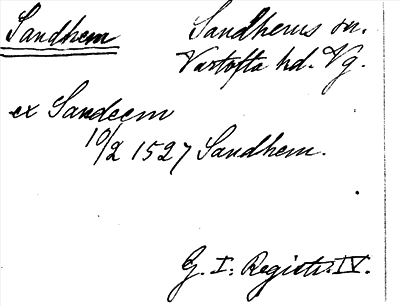 Sandhem
Sandhems sn.
Vartofta hd. Vg.
ex Sandeem
10/2 1527 Sandhem.
G. I: Registr. IV.